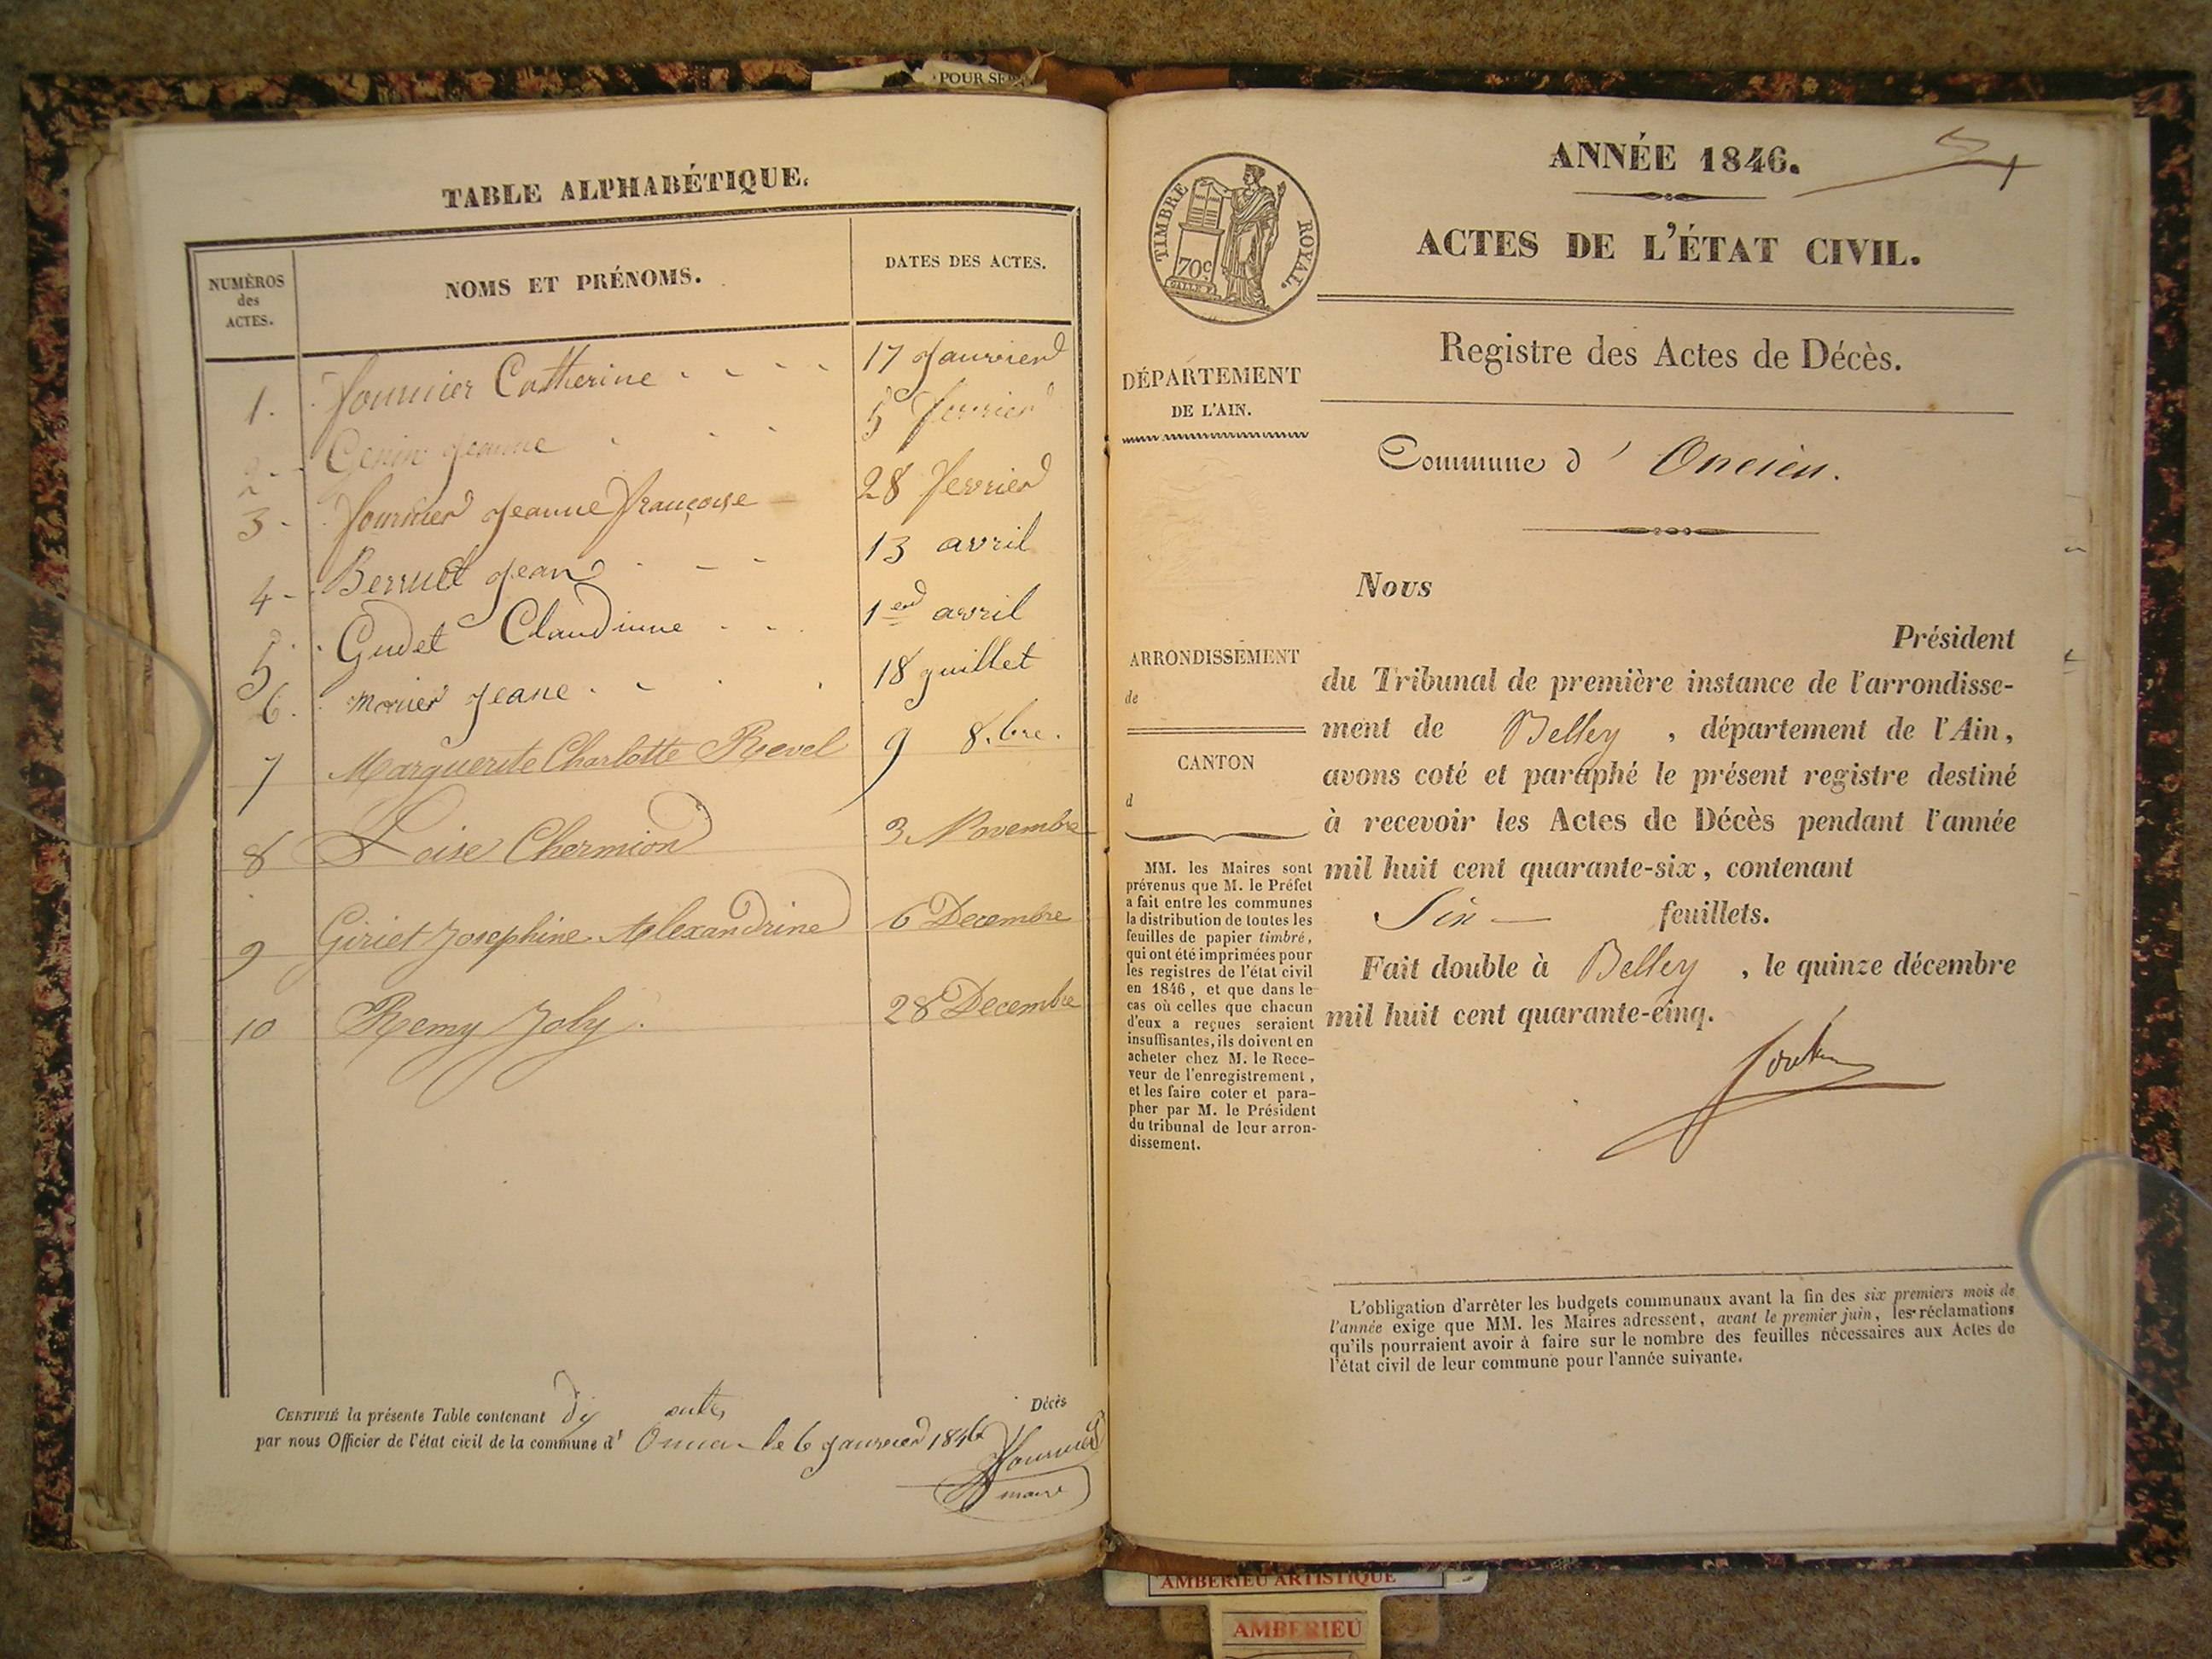 POUR SE
TABLE ALPHABÉTIQUE.
NUMÉROS des ACTES.
NOMS ET PRÉNOMS.
DATES DES ACTES.
1. fournier Catherine 17 Janvier
2 Genin Jeanne 5 fevrier
3 fournier Jeanne françoise 28 fevrier
4 Berruet Jean 13 avril
5 Gudet Claudinne 1er avril
6. morier Jeane 18 guillet
7 Marguerite Charlotte Revel 9 8.bre.
8 Loise Chermion 3 Novembre
9 Giriet Josephine Alexandrine 6 Decembre
10 Remy Joly. 28 Decembre
CERTIFIÉ la présente Table contenant dix actes Décès
par nous Officier de l'état civil de la commune d' le 6 Janvier 1846
fournier
maire
ANNÉE 1846.
TIMBRE ROYAL.
70c
ACTES DE L'ÉTAT CIVIL.
Registre des Actes de Décès.
DÉPARTEMENT
DE L'AIN.
Commune d' Oncieu.
Nous
Président
du Tribunal de première instance de l'arrondisse-
ment de Belley , département de l'Ain,
avons coté et paraphé le présent registre destiné
à recevoir les Actes de Décès pendant l'année
mil huit cent quarante-six, contenant
Six feuillets.
Fait double à Belley , le quinze décembre
mil huit cent quarante-cinq.
ARRONDISSEMENT
de
CANTON
d
MM. les Maires sont
prévenus que M. le Préfet
a fait entre les communes
la distribution de toutes les
feuilles de papier timbré,
qui ont été imprimées pour
les registres de l'état civil
en 1846, et que dans le
cas où celles que chacun
d'eux a reçues seraient
insuffisantes, ils doivent en
acheter chez M. le Rece-
veur de l'enregistrement,
et les faire coter et para-
pher par M. le Président
du tribunal de leur arron-
dissement.
L'obligation d'arrêter les budgets communaux avant la fin des six premiers mois de
l'année exige que MM. les Maires adressent, avant le premier juin, les réclamations
qu'ils pourraient avoir à faire sur le nombre des feuilles nécessaires aux Actes de
l'état civil de leur commune pour l'année suivante.
AMBERIEU ARTISTIQUE
AMBERIEU